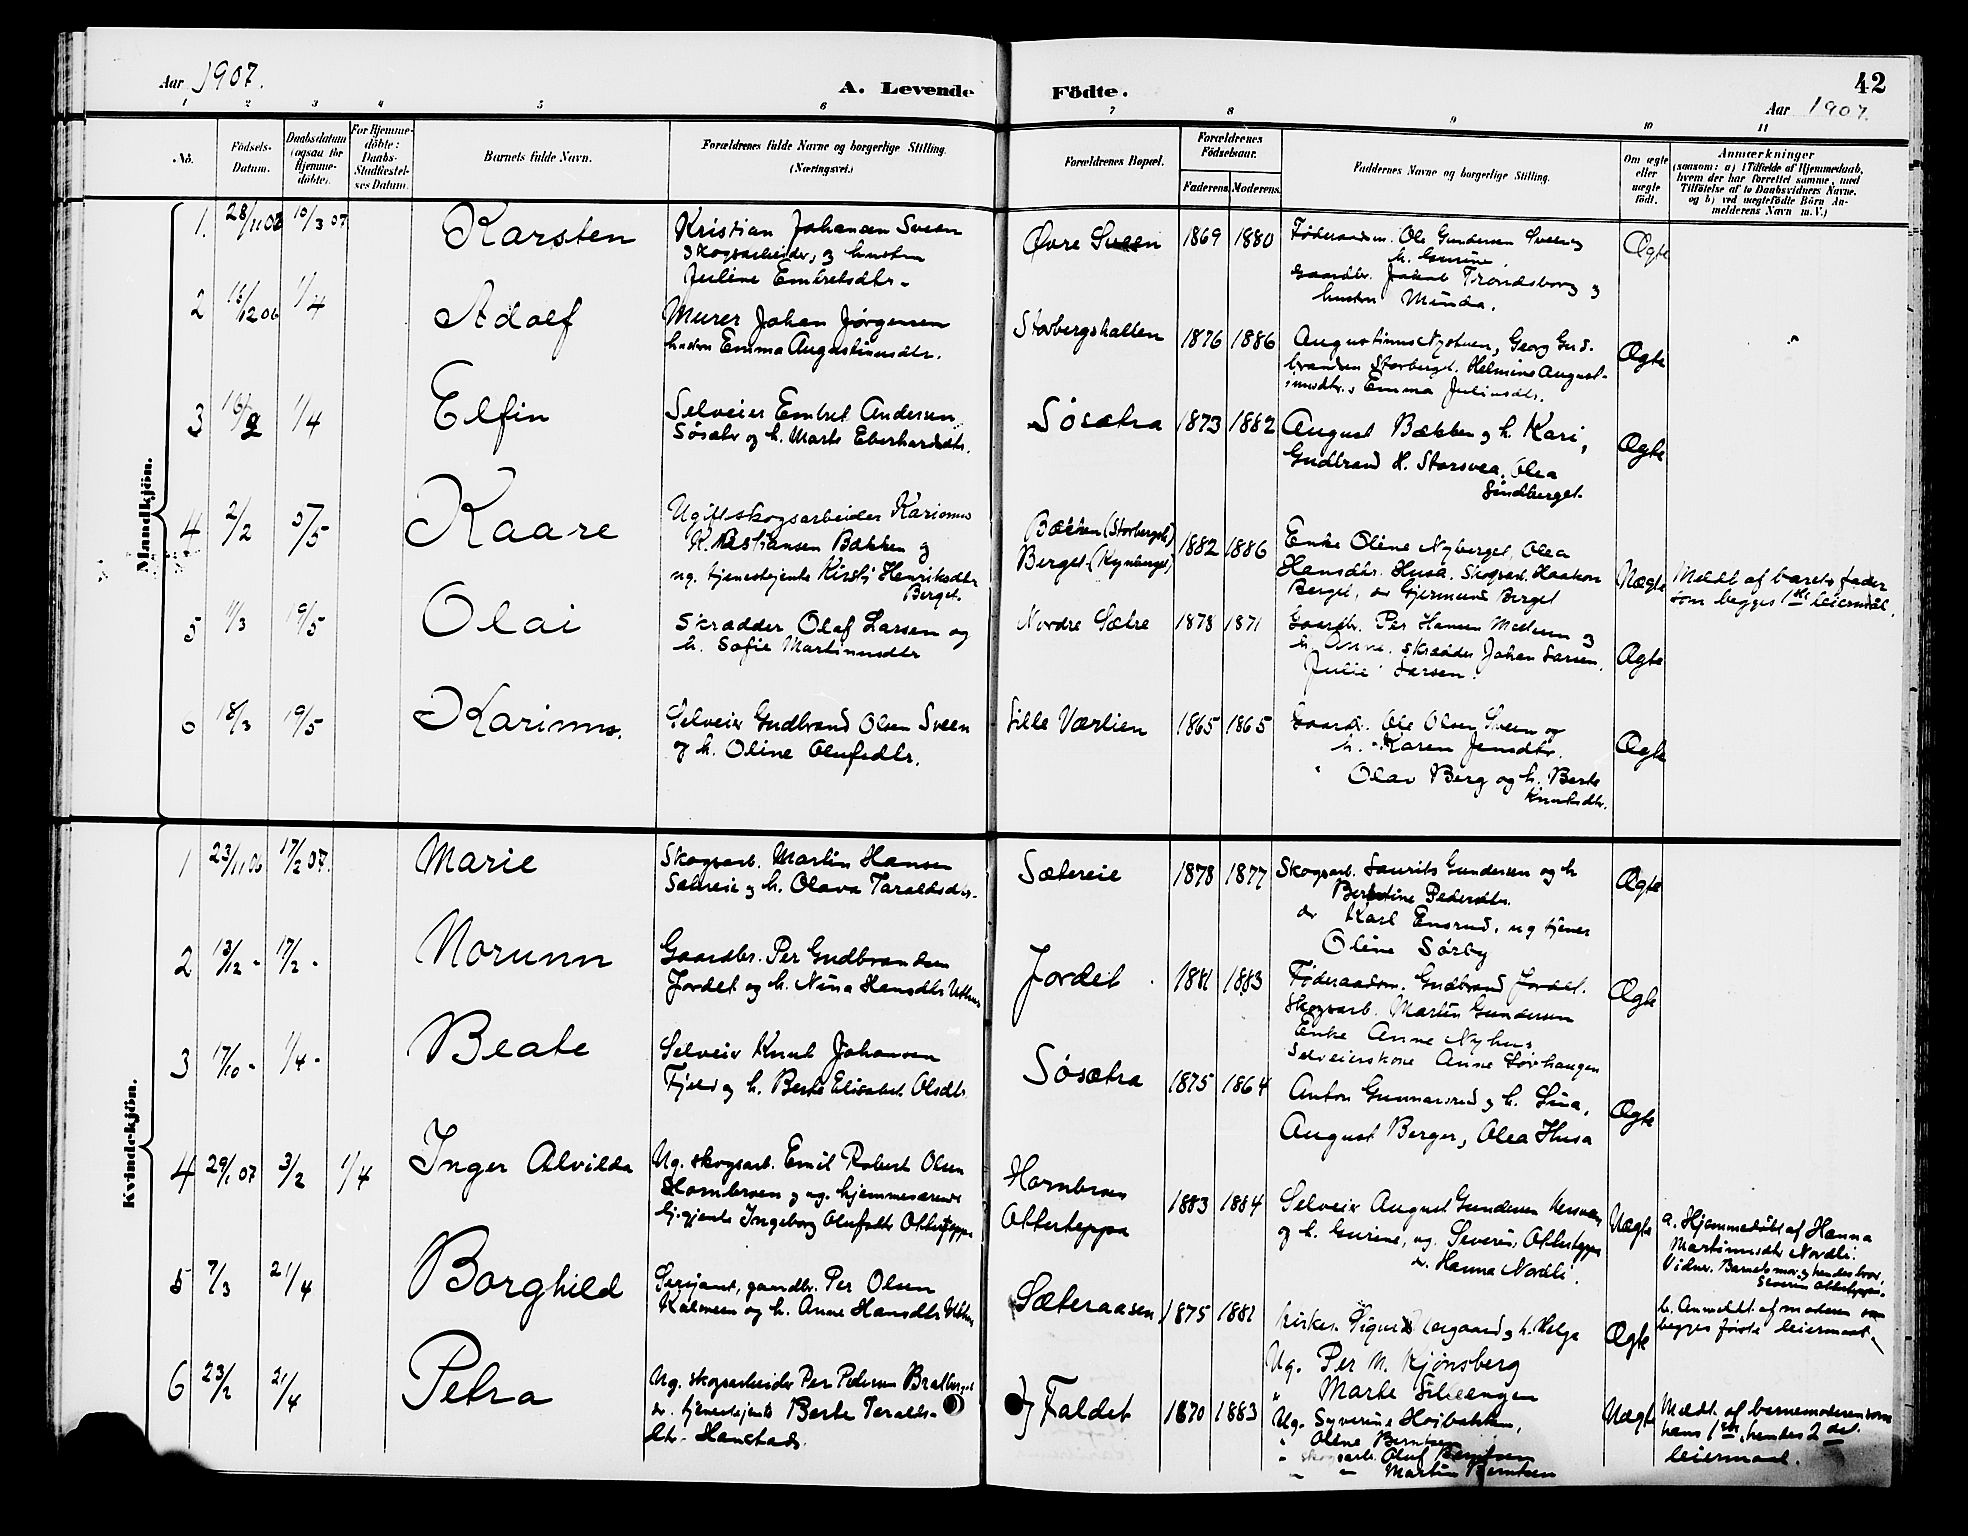 Aar 1907.
A. Levende Födte.
42
Aar 1907.
1 2 3 4 5 6 7 8 9 10 11
No.
Födsels-Datum.
Daabsdatum (ogsaa for Hjemme-döbte).
For Hjemme-döbte: Daabs-Stadfæstel-ses Datum.
Barnets fulde Navn.
Forældrenes fulde Navne og borgerlige Stilling. (Næringsvei.)
Forældrenes Bopæl.
Forældrenes Födselsaar.
Faderens. Moderens.
Faddernes Navne og borgerlige Stilling.
Om ægte eller uægte födt.
Anmærkninger
(saasom: a) i Tilfælde af Hjemmedaab,
hvem der har forrettet samme, med
Tilföielse af to Daabsvidners Navne.
og b) ved uægtefödte Börn An-
melderens Navn m. V.)
Mandkjön.
1. 28/11 06 10/3 07 Karsten
Kristian Johansen Sveen
skogsarbeider, og hustru
Juline Embretsdtr.
Øvre Sveen 1869 1880
Føderaadsm. Ole Gundersen Sveen og
h. Gunine.
Gaardbr. Jakob Trondsborg og
hustru Minda.
Ægte
2 15/12 06 1/4 Adolf
Murer Johan Jørgensen
hustru Emma Augustinusdtr.
Storbergshallen 1876 1886
Augustinus Nystuen, Georg Gud-
brandsen Storberget. Helmine August-
inusdtr., Emma Juliusdtr.
Ægte
3 1/4 Elfin
Selveier Embret Andersen
Søsætr og h. Marte Eberhardsdtr.
Søsætra 1873 1882
August Bækken og h. Kari,
Gudbrand H. Storsvea, Olea
Lindberget.
Ægte
4 2/2 5/5 Kaare
Ugift skogsarbeider Karinus
Kristiansen Bækken og
ug. tjenestejente Kirsti Henriksdtr
Berget.
Bækken (Storberget)
Berget (Kynberget)
1882 1886
Enke Oline Nyberget, Olea
Hansdtr. Husa. Skogsarb. Haakon
Berget, do Gjermund Berget
Uægte
Meldt af barnets fader
som begges 1ste leiermaal.
5 1/3 19/5 Olai
Skrædder Olaf Larsen og
h. Sofie Martinusdtr
Nordre Sætre 1878 1871
Gaardbr. Per Hansen Mellem og
h. Anne. skrædder Johan Larsen.
Julie Larsen.
Ægte
6 18/3 19/5 Karinus.
Selveier Gudbrand Olsen Sveen
og h. Oline Olufsdtr.
Lille Værlien 1865 1865
Gaardb. Ole Olsen Sveen og
h. Karen Jensdtr.
" Olav Berg og h. Berte
Knutsdtr.
Ægte
Kvindekjön.
1 23/11 06 17/2 07. Marie
Skogsarb. Martin Hansen
Sætreie og h. Olava Taraldsdtr.
Sætereie 1878 1877
Skogsarb. Laurits Gundersen og h
Berntine Pedersdtr.
do Karl Ensrud, ug tjener
Oline Sørby
Ægte
2 13/12 - 17/2 - Norunn
Gaardbr. Per Gudbrandsen
Jordet og h. Nina Hansdtr
Jordet 1881 1883
Føderaadsm. Gudbrand Jordet.
Skogsarb. Martin Gundersen
Enke Anne Nyhus
Selveierskone Anne Lørhaugen
Ægte
3 17/10 - 1/4 - Beate
Selveier Knut Johansen
Fjeld og h. Berte Elisabet Olsdtr.
Søsætra 1875 1864
Anton Gunnarsrud og h. Lina,
August Berger, Olea Husa
Ægte
4 29/1 07 3/2 1/4 Inger Alvilda
Ug. skogsarb. Emil Robert Olsen
Hornbroen og ug. hjemmeværende
Ingeborg Olufsdtr Ottesteppa
Hornbroen
Ottesteppa
1883 1884
Selveier August Gundersen
og h. Gurine, ug. Severin Ottesteppen
do. Hanna Nordli.
Uægte
a. Hjemmedøbt af Hanna
Martinusdtr Nordli.
Vidner. Barnets mor og hendes bror,
Severin Ottesteppen.
b. Anmeldt af moderen som
begges første leiermaal.
5 7/3 21/4 Borghild
Serjant, gaardbr. Per Olsen
og h. Anne Hansdtr
Sæteraasen 1875 1881
og h. Helga
Ug. Per M. Kjønsberg
" Marte Lilleengen
Ægte
6 23/2 21/4 Petra
Ug. skogsarbeider Per Pedersen
do. tjenestejente Berte Taralds-
dtr. Hanstad.
Faldet 1870 1883
Ug. Syverine Høibakken,
" Oline Berntsen
" skogsarb. Oluf Berntsen
" " Martin Berntsen
Uægte
Meldt af barnemoderen som
hans 1ste, hendes 2det
leiermaal.